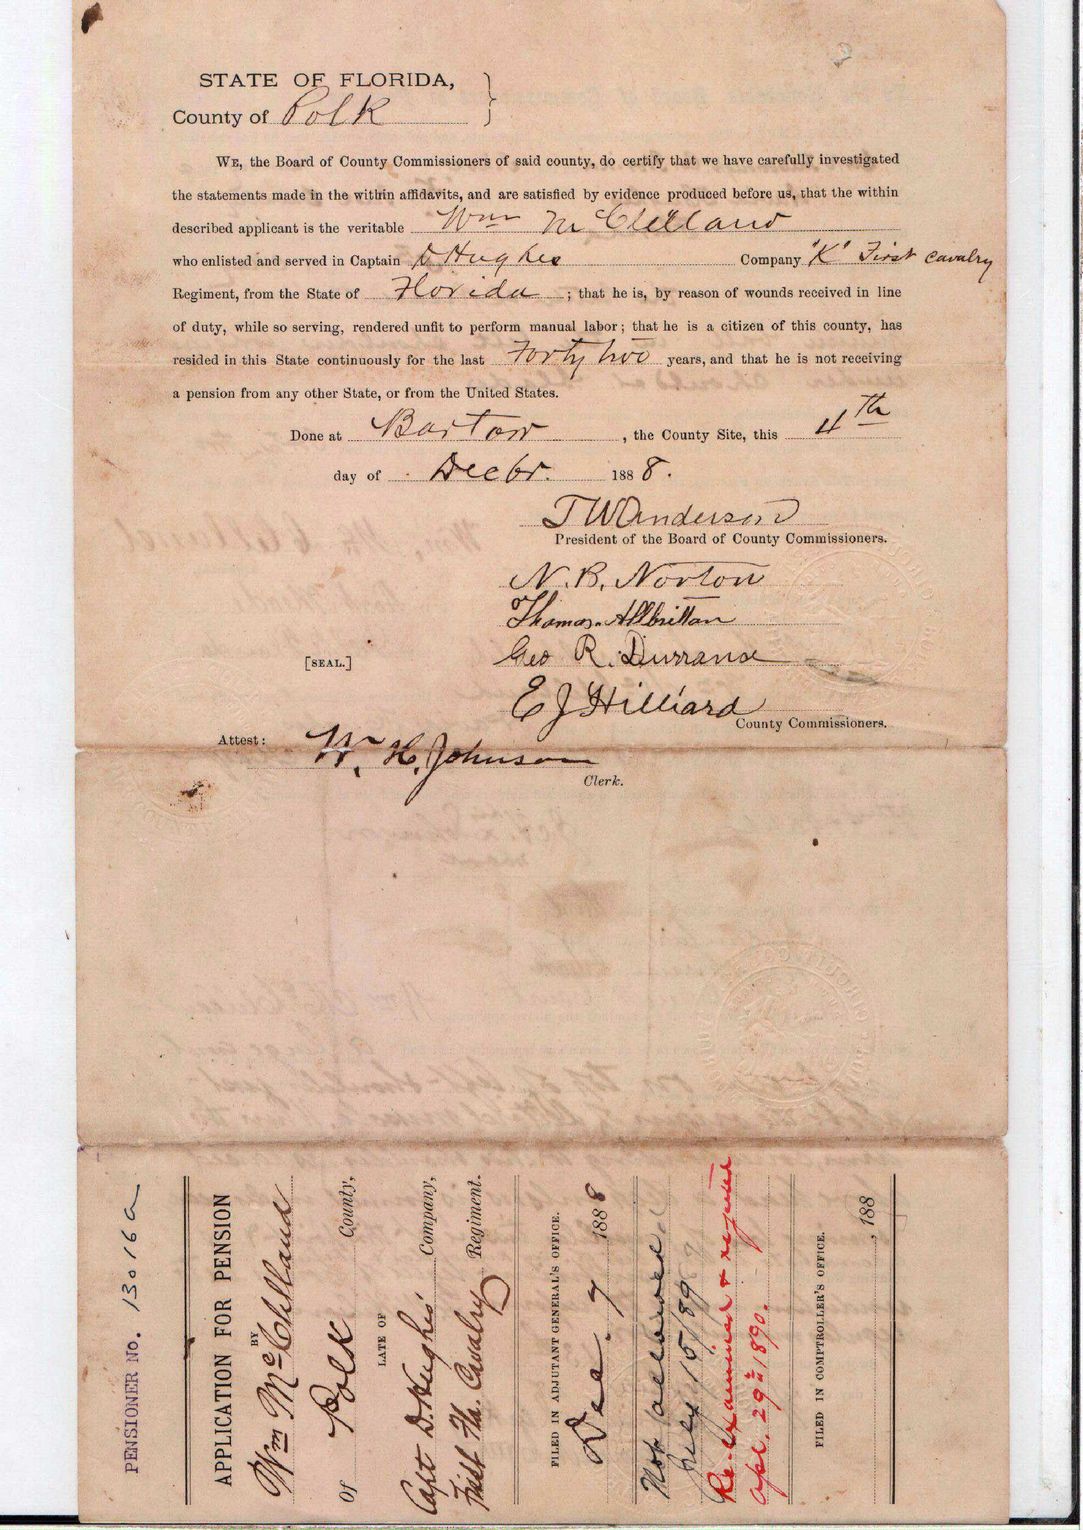 STATE OF FLORIDA,
County of Polk
WE, the Board of County Commissioners of said county, do certify that we have carefully investigated
the statements made in the within affidavits, and are satisfied by evidence produced before us, that the within
described applicant is the veritable Wm McClelland
who enlisted and served in Captain D Hughes Company "K" First cavalry
Regiment, from the State of Florida ; that he is, by reason of wounds received in line
of duty, while so serving, rendered unfit to perform manual labor; that he is a citizen of this county, has
resided in this State continuously for the last Forty two years, and that he is not receiving
a pension from any other State, or from the United States.
Done at Bartow , the County Site, this 4th
day of Decbr. 1888.
J W Anderson
President of the Board of County Commissioners.
N. B. Norton
Thomas. Albritton
Geo R. Durrance
[SEAL.]
E J Hilliard
County Commissioners.
Attest: W. H. Johnson
Clerk.
PENSIONER NO. 13016a
APPLICATION FOR PENSION
BY
Wm McClelland
Of Polk County,
LATE OF
Capt D. Hughes' Company,
First Fla. Cavalry Regiment.
FILED IN ADJUTANT GENERAL'S OFFICE.
Dec. 7 1888
Not allowed
July 15/89
Re-examined &
Apl. 29" 1890.
FILED IN COMPTROLLER'S OFFICE.
, 188